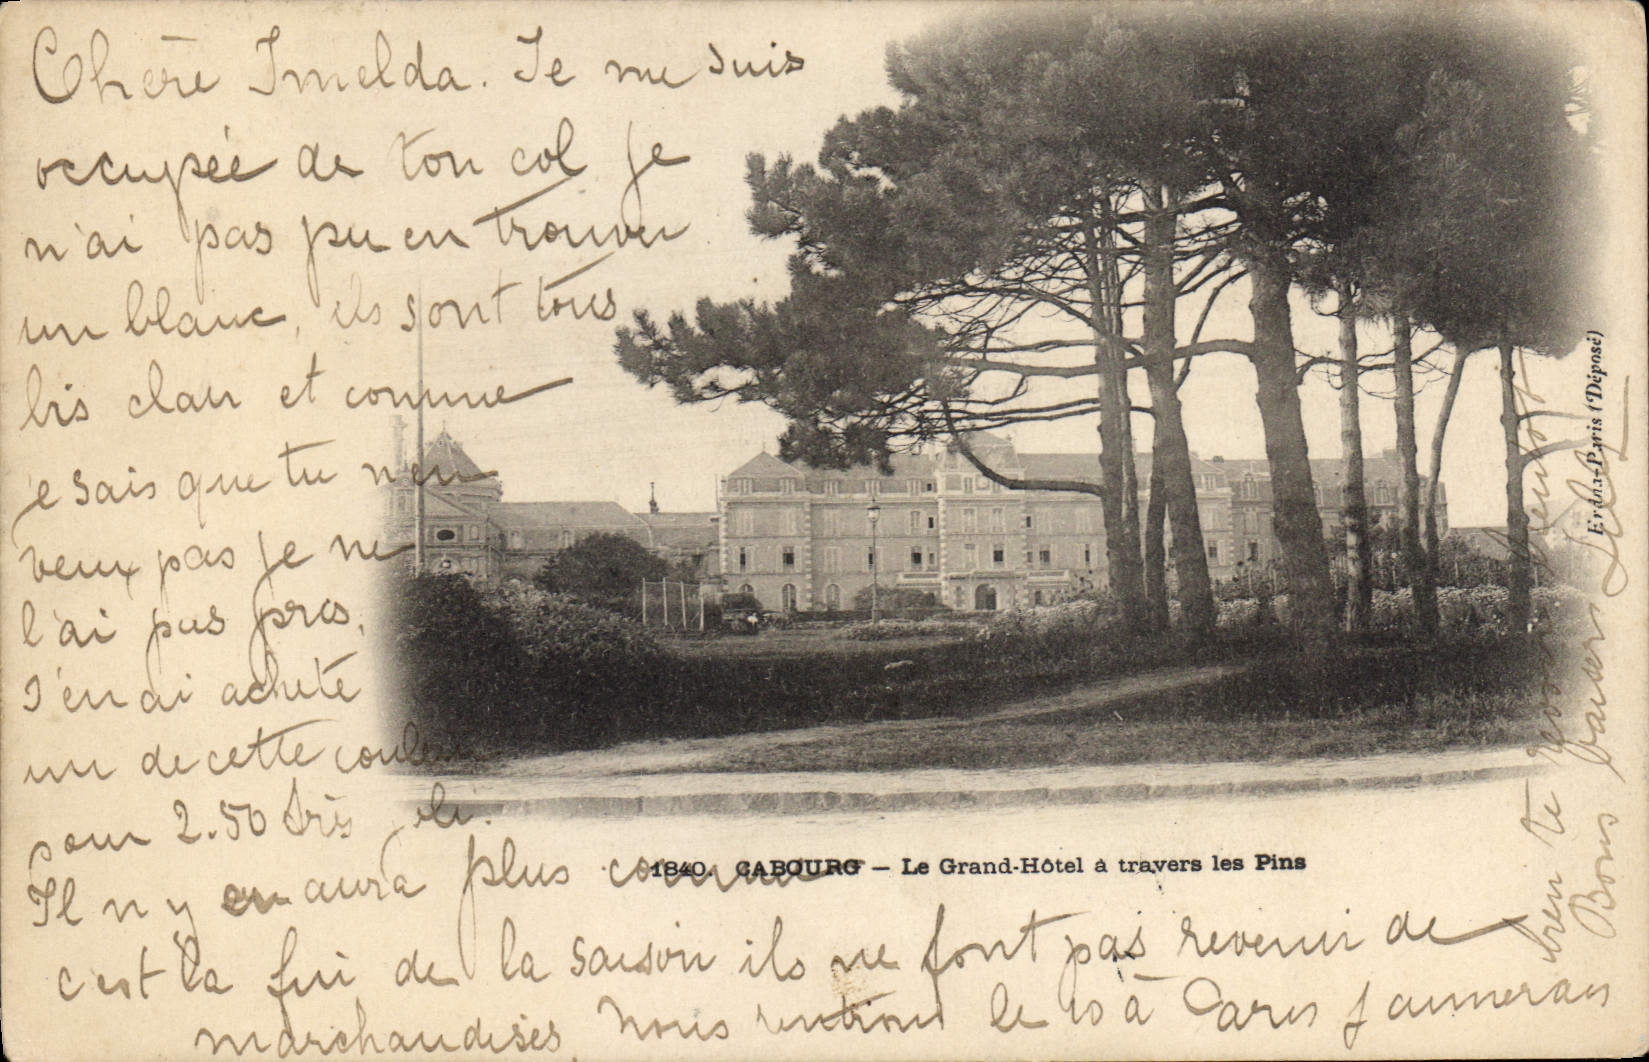 Chère Imelda. Je me suis
occupée de ton col je
n'ai pas pu en trouver
un blanc, ils sont tous
bis clair et comme
je sais que tu n'en
veux pas je ne
l'ai pas pris,
J'en ai acheté
un de cette couleur
pour 2.50 très joli.
Il n'y en aura plus comme
c'est la fin de la saison ils ne font pas revenir de
marchandises. Nous rentrons le 10 à Paris j'aimerais
bien te revoir
Bons baisers
1840. CABOURG – Le Grand-Hôtel à travers les Pins
-Paris (Déposé)